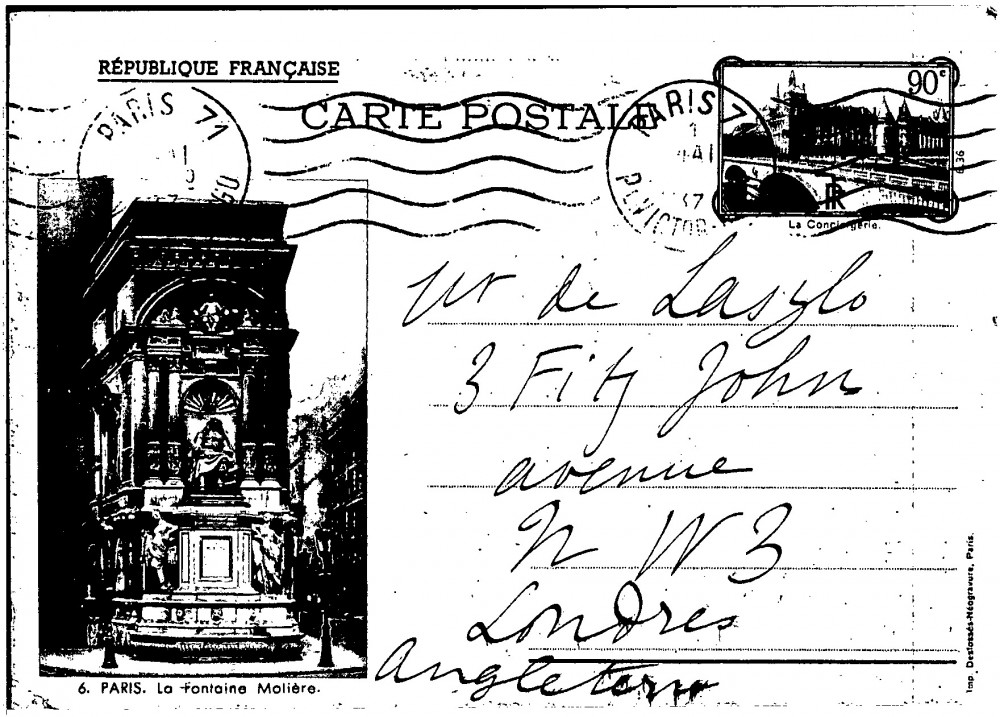 RÉPUBLIQUE FRANÇAISE
CARTE POSTALE
PARIS 71
PARIS 7
90c
RF
La Conciergerie.
Mr de Laszlo
3 Fitz John
avenue
N W 3
Londres
Angleterre
6. PARIS. La Fontaine Molière.
Imp. Desfossés-Néogravure, Paris.